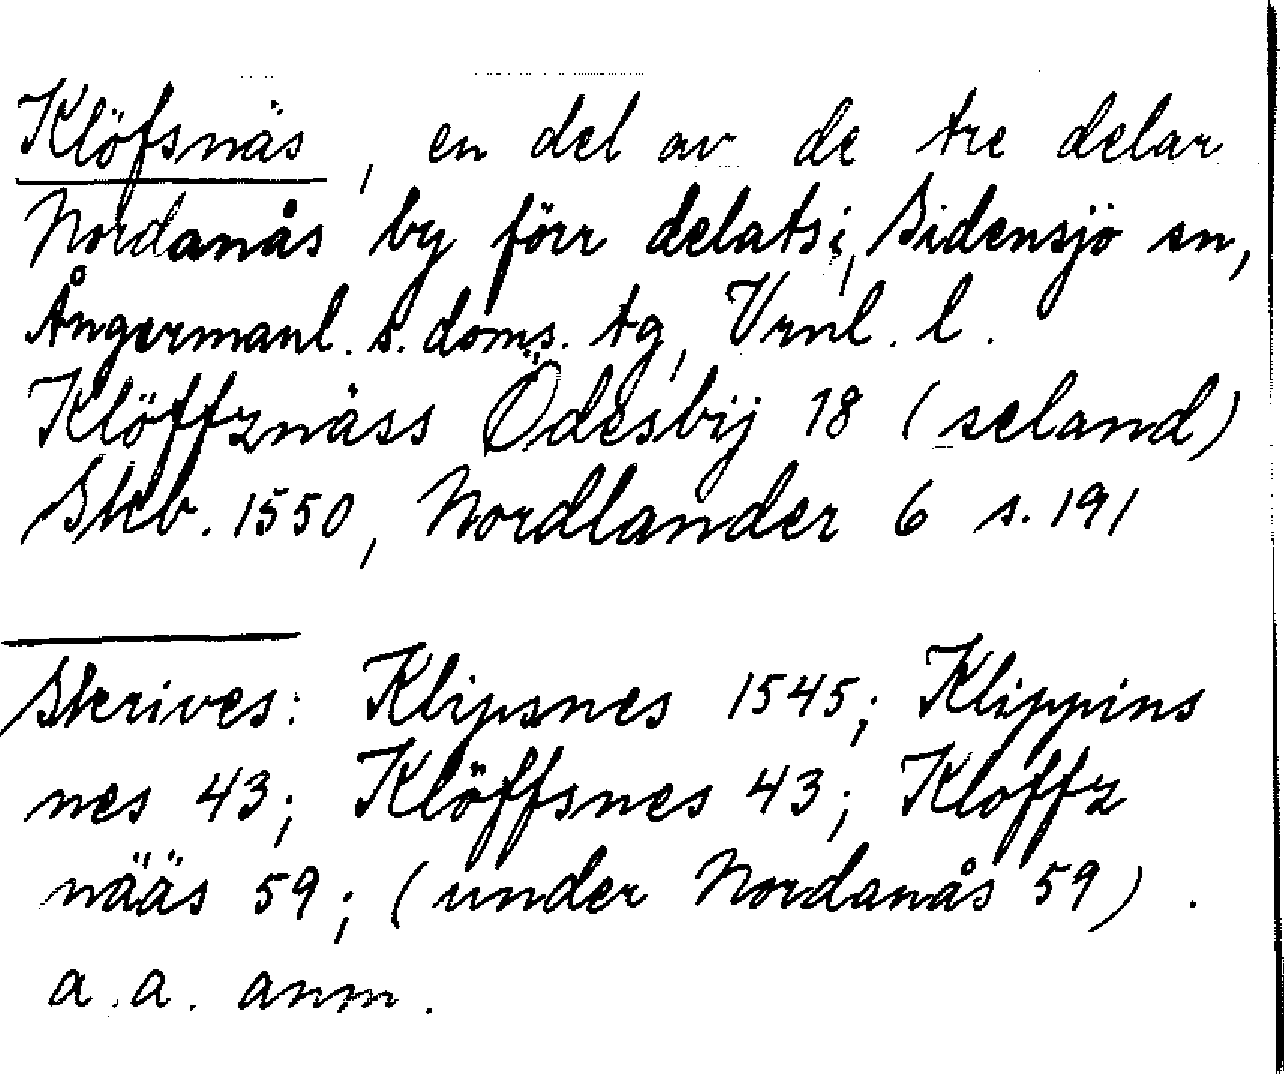 Klöfsnäs, en del av de tre delar
Nordanås by förr delats i, Sidensjö sn,
Ångermanl. s. doms. tg, Vrnl. l.
Klöffznäss Ödesbÿ 18 (seland)
Skb. 1550, Nordlander 6 s. 191
Skrives: Klipsnes 1545; Klippins
nes 43; Klöffsnes 43; Kloffz
nääs 59; (under Nordanås 59).
a.a. anm.